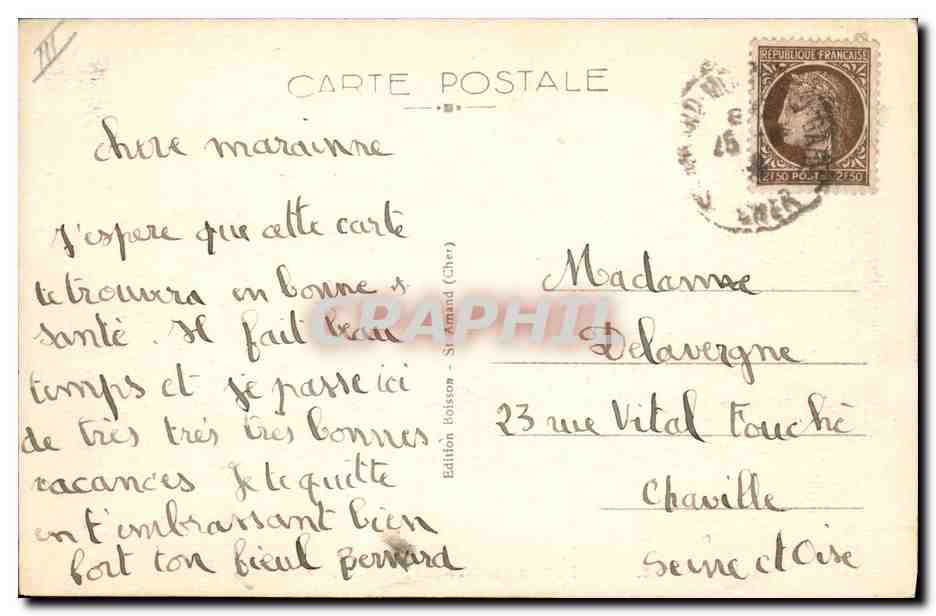 III
CARTE POSTALE
RÉPUBLIQUE FRANÇAISE
2F50 POSTES 2F50
CHER
chere marainne
J'espere que cette carte
te trouvera en bonne
santé. Il fait beau
temps et je passe ici
de très très très bonnes
vacances Je te quitte
en t'embrassant bien
fort ton fieul Bernard
Edition Boisson - St-Amand (Cher)
CRAPHIL
Madame
Delavergne
23 rue Vital Fouché
Chaville
Seine et Oise